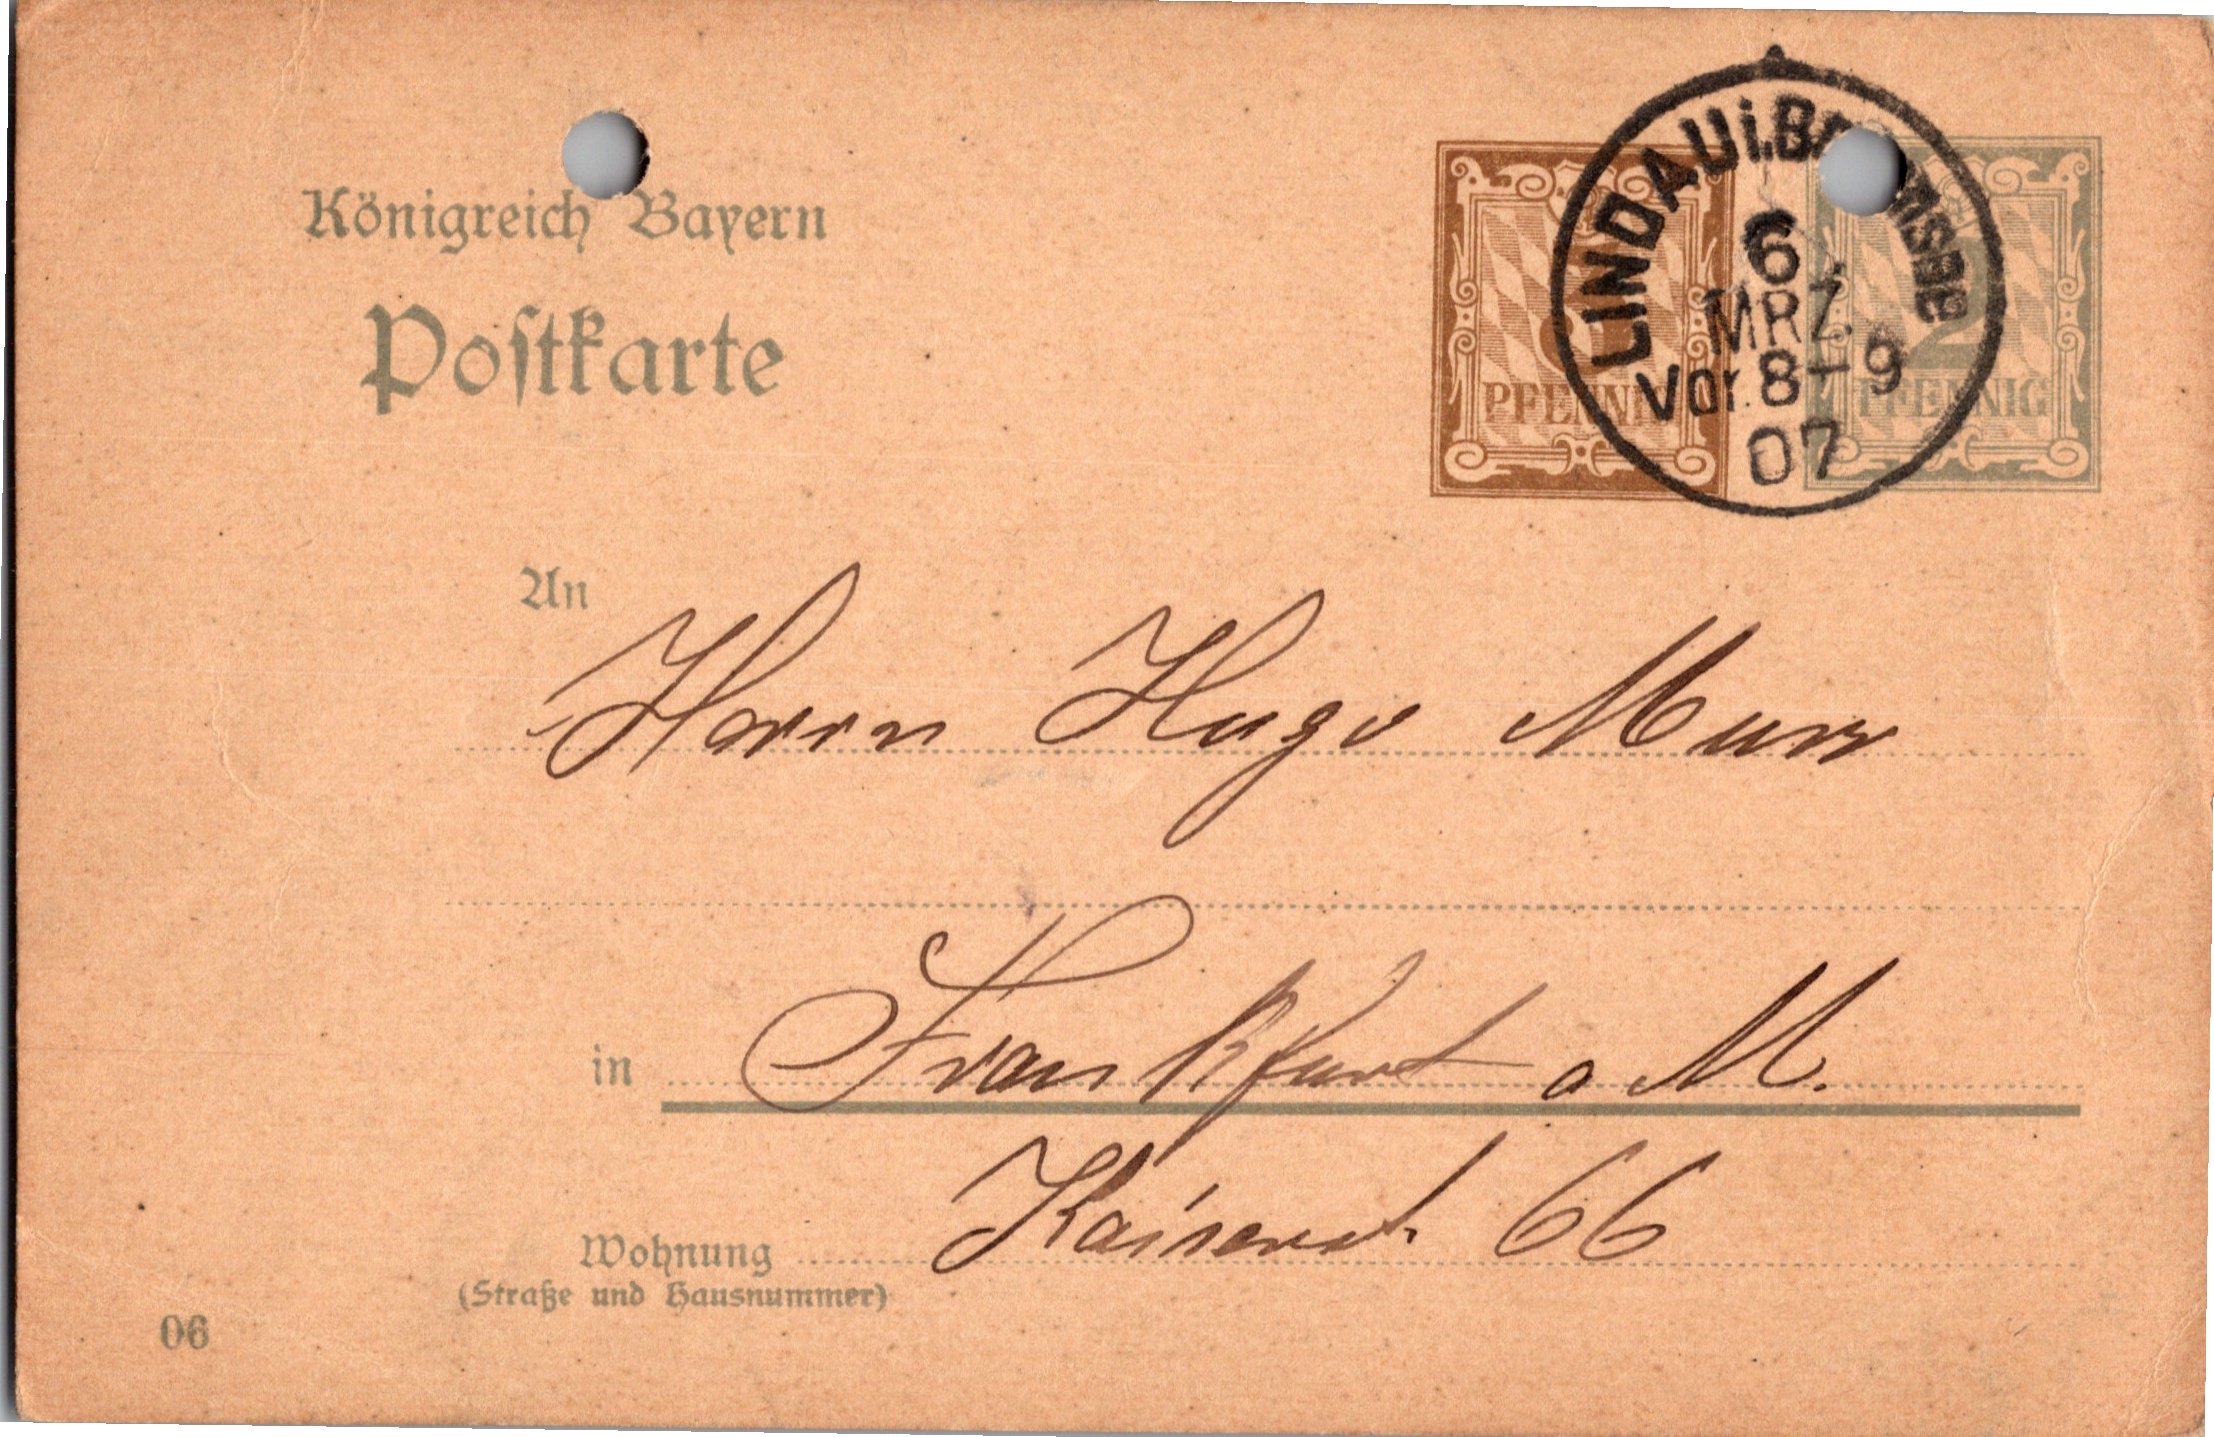 Königreich Bayern
Postkarte
PFENNIG
2
PFENNIG
LINDAU i. B
6
MRZ.
Vor. 8-9
07
An
Herrn Hugo Murr
in Frankfurt a M.
Kaiserst 66
Wohnung
(Straße und Hausnummer)
06